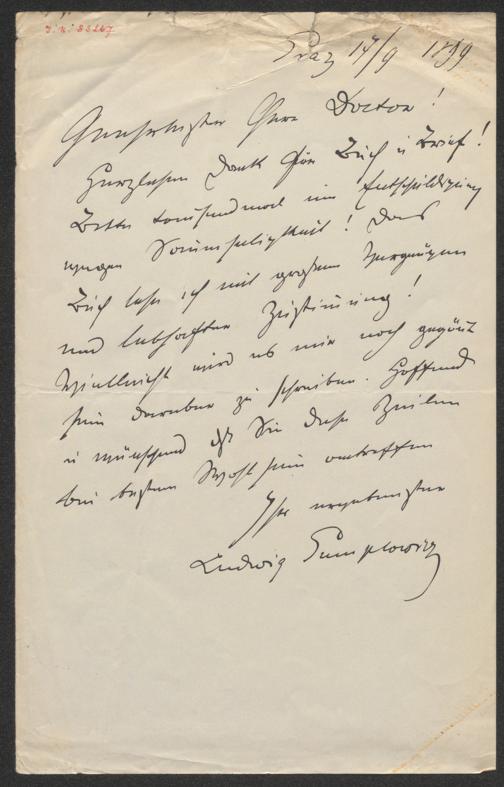 J. N. 83267
Graz 17/9 1899
Geehrtester Herr Doctor!
Herzlichen Dank für Buch u Brief!
Bitte tausendmal um Entschuldigung
wegen Saumseligkeit! Das
Buch lese ich mit großem Vergnügen
und lebhafter Zustimmung!
Vielleicht wird es mir noch gegönnt
sein darüber zu schreiben. Hoffend
u wünschend dß Sie diese Zeilen
bei bestem Wohlsein antreffen
Ihr ergebenster
Ludwig Gumplowicz